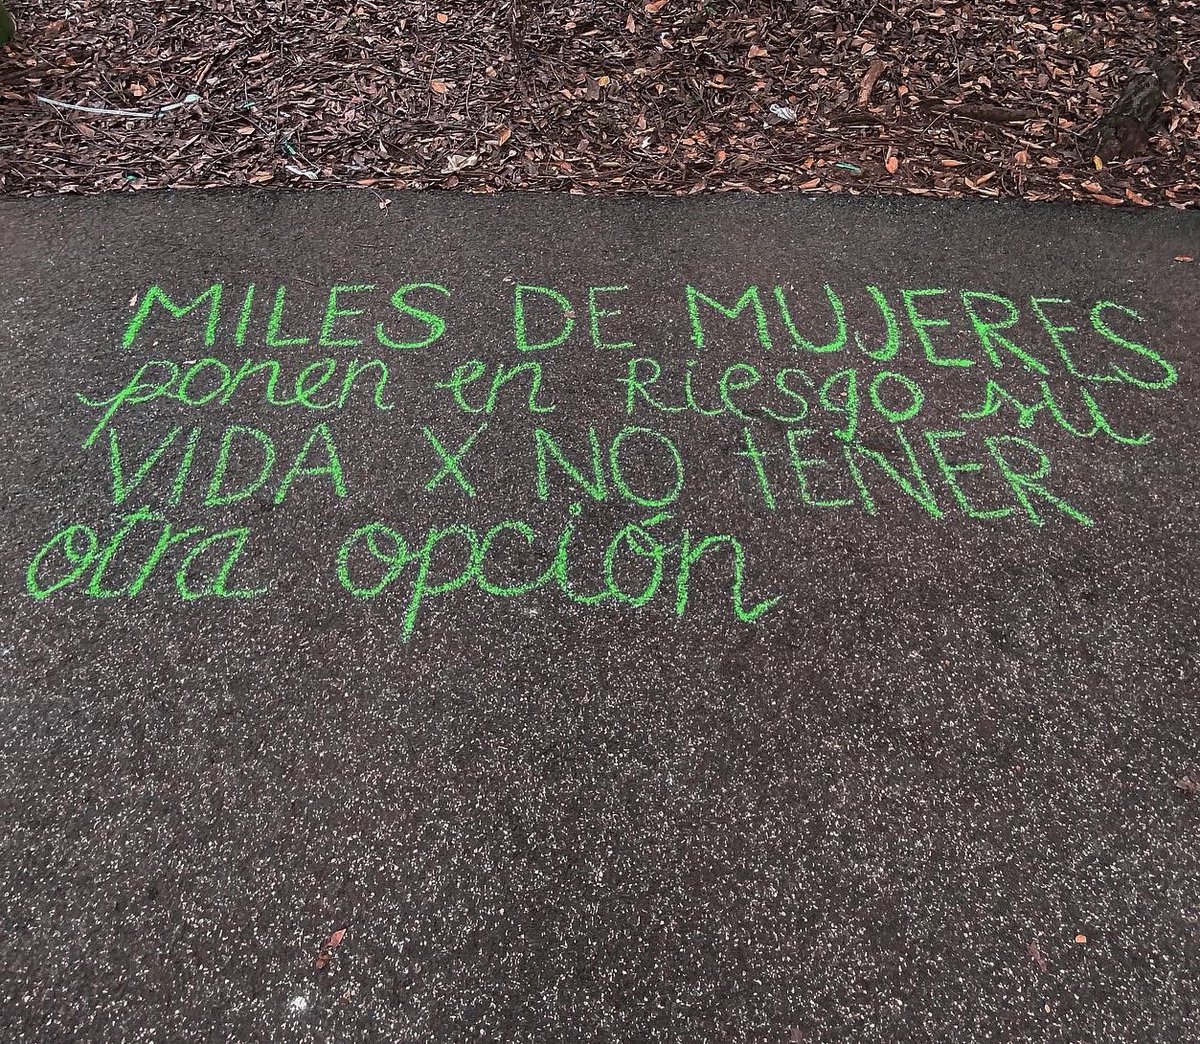 MILES DE MUJERES
ponen en Riesgo su
VIDA X NO tENER
otra opción